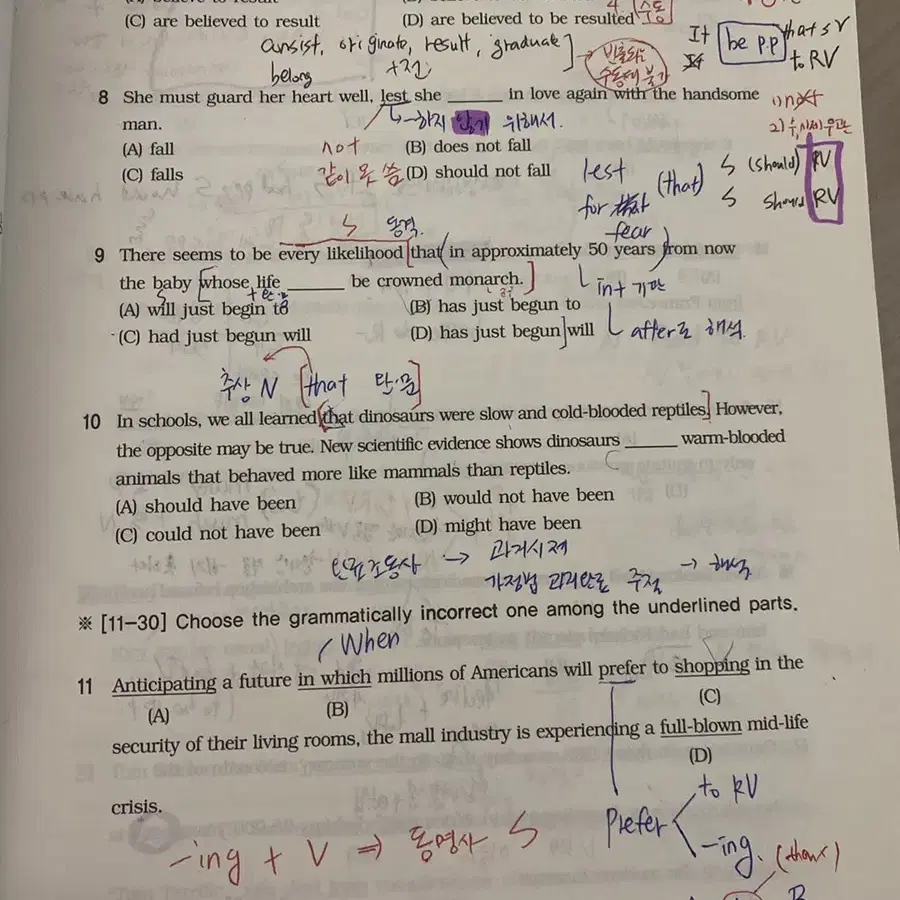 (C) are believed to result (D) are believed to be resulted 수동
consist, originate, result, graduate It be p.p that S V
belong +전 빈출되는 수동태 불가 to RV
8 She must guard her heart well, lest she _____ in love again with the handsome
man. ~하지 않기 위해서.
1) not
(A) fall (B) does not fall
not
(C) falls (D) should not fall
같이 못 씀
lest (that) S (should) RV
for fear S should RV
S 동격.
9 There seems to be every likelihood that in approximately 50 years from now
the baby whose life _____ be crowned monarch.
in + 기간
(A) will just begin to (B) has just begun to
(C) had just begun will (D) has just begun will
after로 해석.
추상 N [that 완·문]
10 In schools, we all learned that dinosaurs were slow and cold-blooded reptiles. However,
the opposite may be true. New scientific evidence shows dinosaurs _____ warm-blooded
animals that behaved more like mammals than reptiles.
(A) should have been (B) would not have been
(C) could not have been (D) might have been
→ 과거시제
가정법 과거완료 주절 → 해석
※ [11–30] Choose the grammatically incorrect one among the underlined parts.
When
11 Anticipating a future in which millions of Americans will prefer to shopping in the
(A) (B) (C)
security of their living rooms, the mall industry is experiencing a full-blown mid-life
(D)
crisis.
to RV
Prefer
-ing. (than)
-ing + V ⇒ 동명사 S